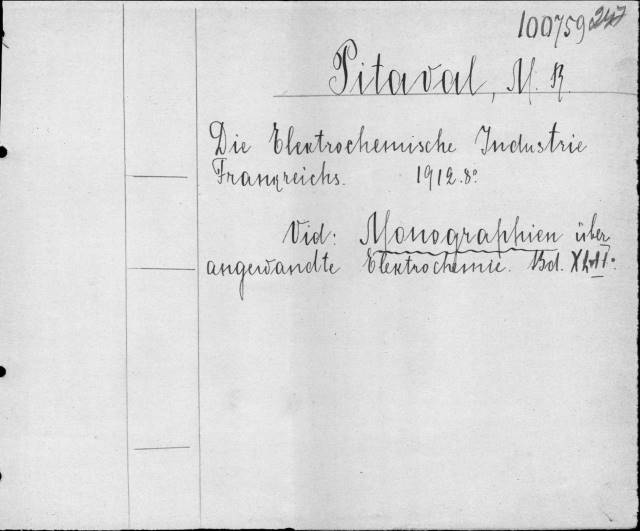 100759 247
Pitaval, M. R.
Die Elektrochemische Industrie
Frankreichs. 1912. 8°
Vid: Monographien über
angewandte Elektrochemie. Bd.